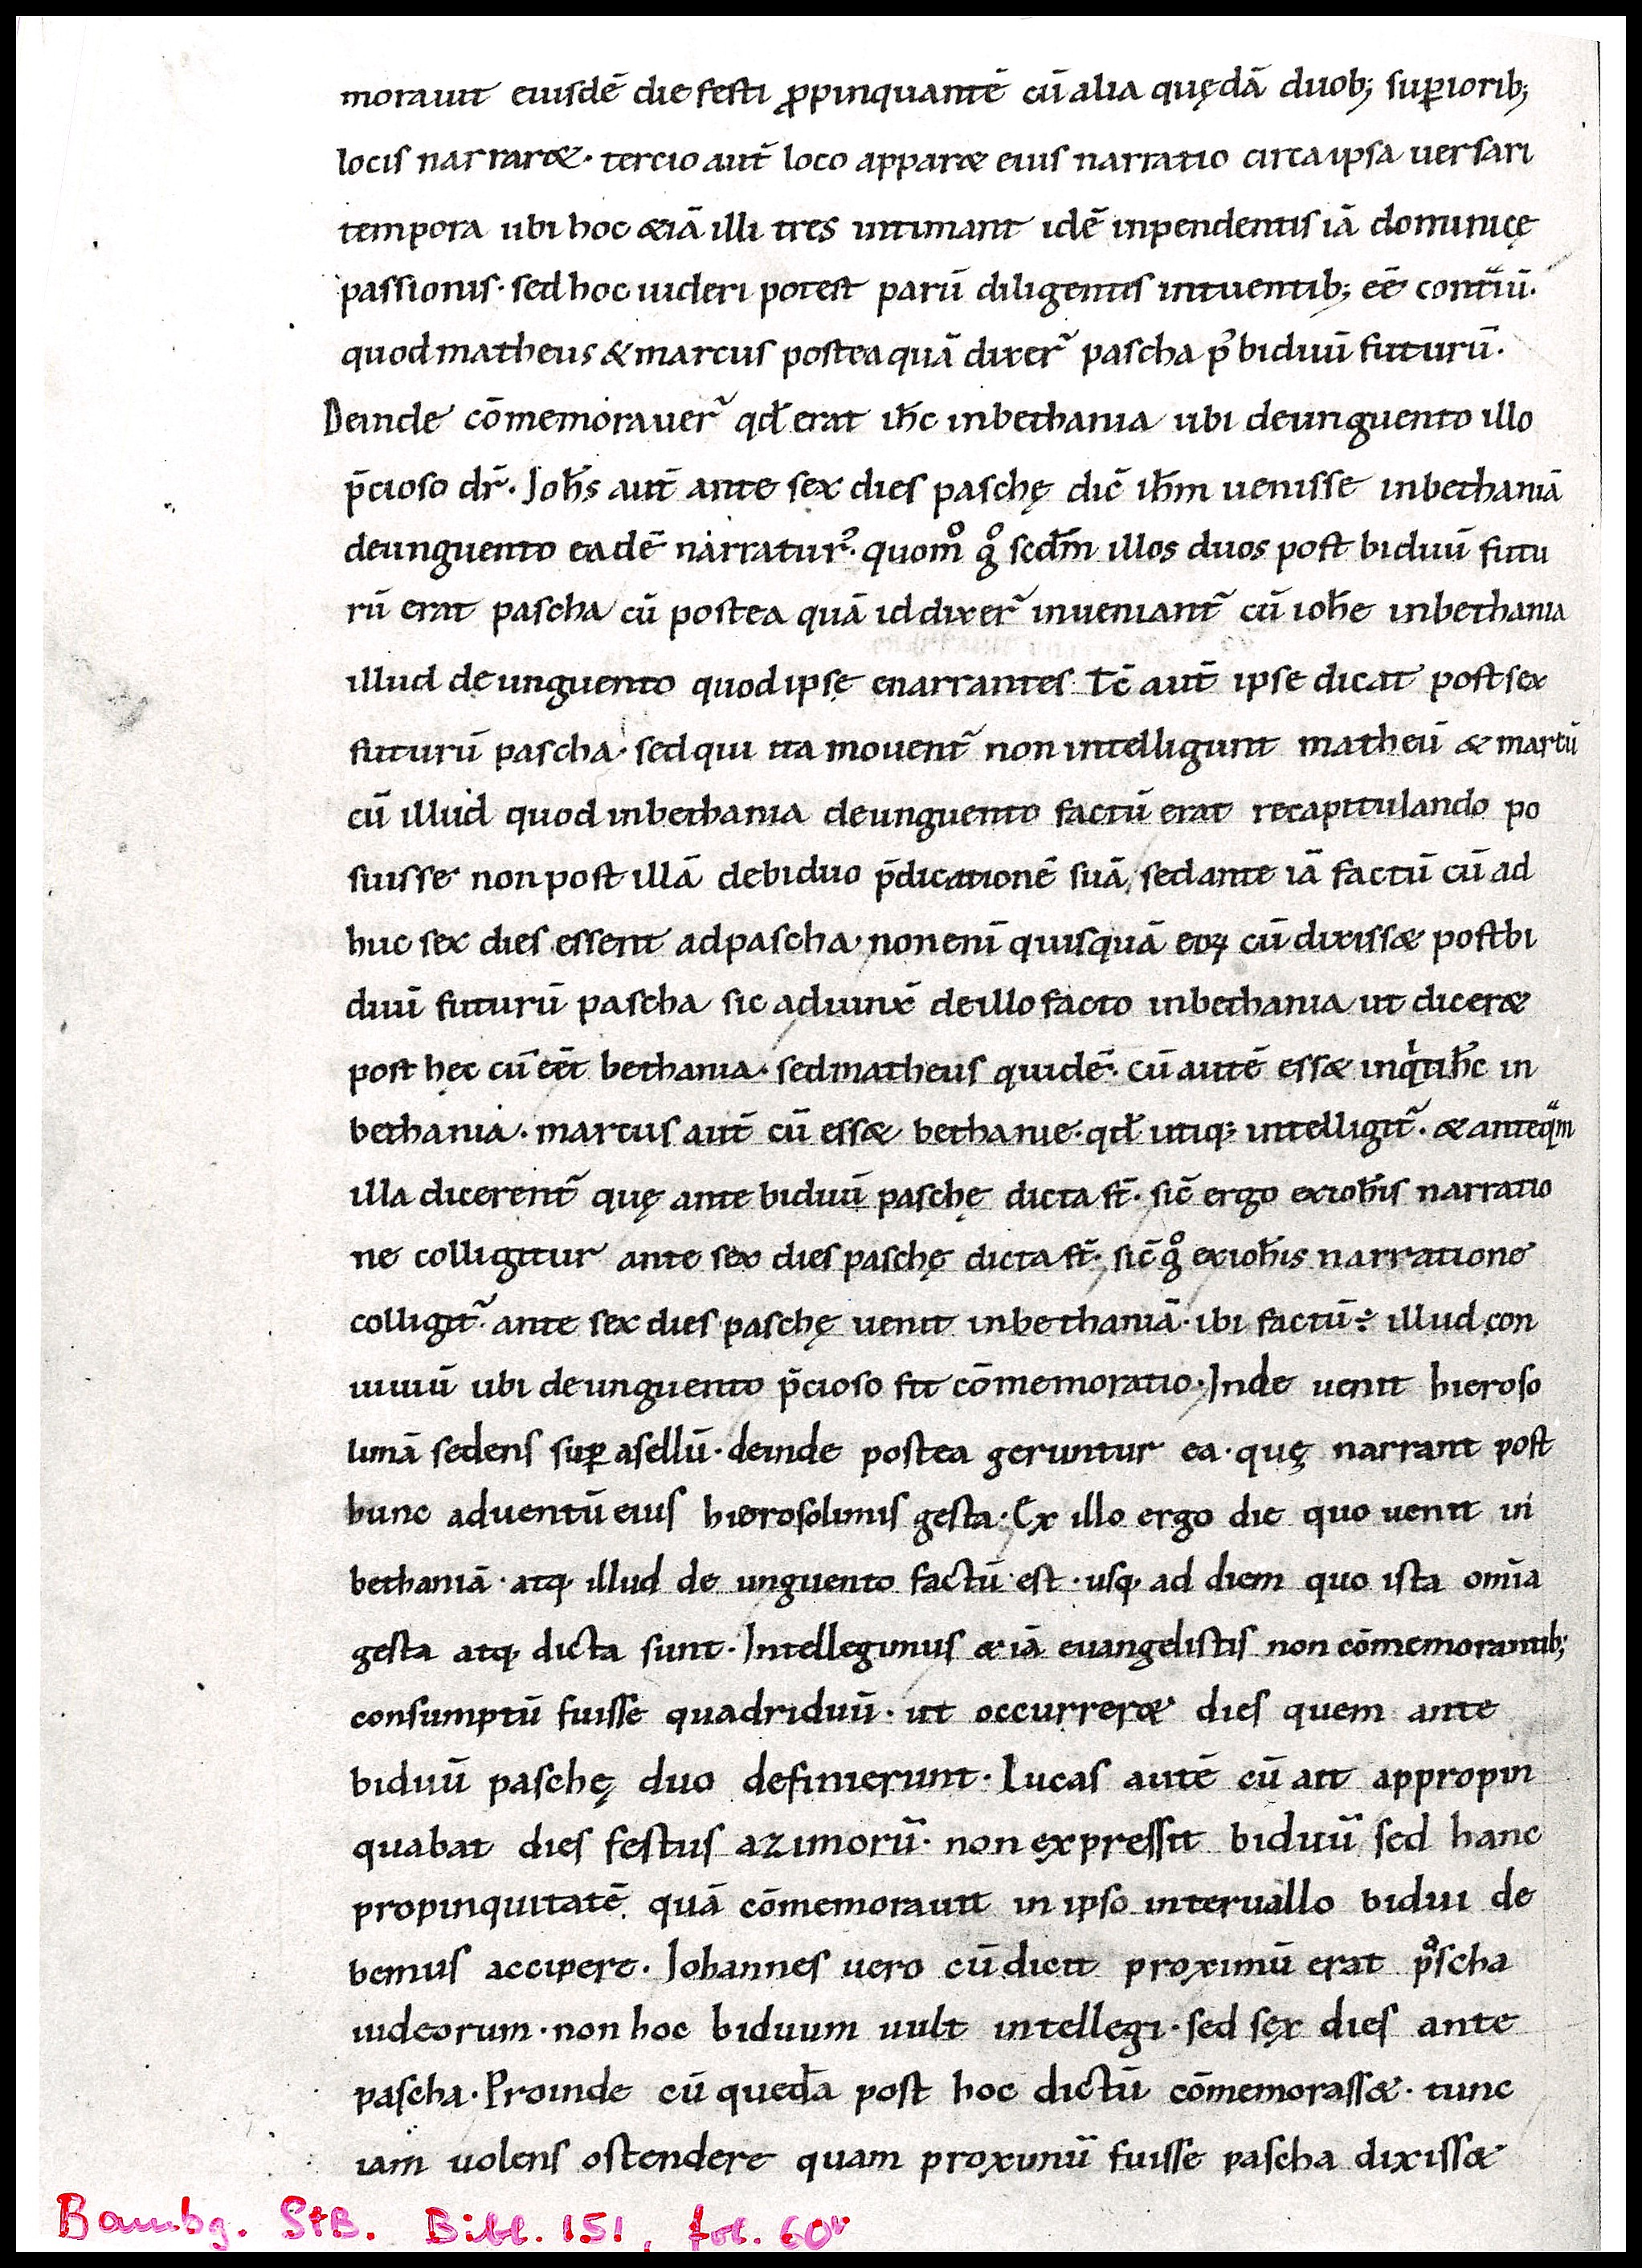 morauit eiusdē die festi ꝓpinquantē cū alia quędā duob; suꝑiorib;
locis narraret · tercio aut̄ loco apparet eius narratio circa ipsa uersari
tempora ubi hoc &iā illi tres intimant idē inpendentis iā dominicę
passionis · sed hoc uideri potest parū diligentis intuentib; eē contͣiū ·
quod matheus & marcus postea quā dixer̄ pascha p᷒ biduū futurū ·
Deinde cōmemorauer̄ qđ erat ih̄c in bethania ubi de unguento illo
p̄cioso dr̄ · Joh̄s aut̄ ante sex dies paschę dic̄ ih̄m uenisse in bethaniā
de unguento eadē narratur᷒ · quomͦ gͦ scd̄m illos duos post biduū futu
rū erat pascha cū postea quā id dixer̄ inueniant̄ cū ioh̄e in bethania
illud de unguento quod ipsę enarrantes · Tc̄ aut̄ ipse dicat post sex
futurū pascha · sed qui ita mouent̄ non intelligunt matheū & marcū
cū illud quod in bethania de unguento factū erat recapitulando po
suisse non post illā de biduo p̄dicationē suā, sed ante iā factū cū ad
huc sex dies essent ad pascha · non enī quisquā eoꝝ cū dixisset post bi
duū futurū pascha sic adiunx̄ de illo facto in bethania ut diceret
post hęc cū eēt bethania · sed matheus quidē · cū autē esset inqͥt ih̄c in
bethania · marcus aut̄ cū esset bethanie · qđ utiq; intelligit̄ · & anteqͣm
illa dicerent̄ quę ante biduū paschę dicta st̄ · sic̄ ergo ex ioh̄is narratio
ne colligitur ante sex dies paschę dicta st̄ · sic̄ gͦ ex ioh̄is narratione
colligit̄ · ante sex dies paschę uenit in bethaniā · ibi factū ÷ illud con
uiuiū ubi de unguento p̄cioso fit cōmemoratio · Inde uenit hieroso
limā sedens suꝑ asellū · deinde postea geruntur ea · quę narrant post
hunc aduentū eius hierosolimis gesta · Ex illo ergo die quo uenit in
bethaniā · atq; illud de unguento factū est · usq; ad diem quo ista om̄ia
gesta atq; dicta sunt · Intellegimus &iā euangelistis non cōmemorantib;
consumptū fuisse quadriduū · ut occurreret dies quem ante
biduū paschę duo definierunt · Lucas autē cū ait appropin
quabat dies festus azimorū · non expressit biduū sed hanc
propinquitatē quā cōmemorauit in ipso interuallo bidui de
bemus accipere · Johannes uero cū dicit proximū erat pͣscha
iudeorum · non hoc biduum uult intellegi · sed sex dies ante
pascha · Proinde cū quedā post hoc dictū cōmemorasset · tunc
iam uolens ostendere quam proximū fuisse pascha dixisset
Bambg. StB. Bibl. 151, fol. 60v